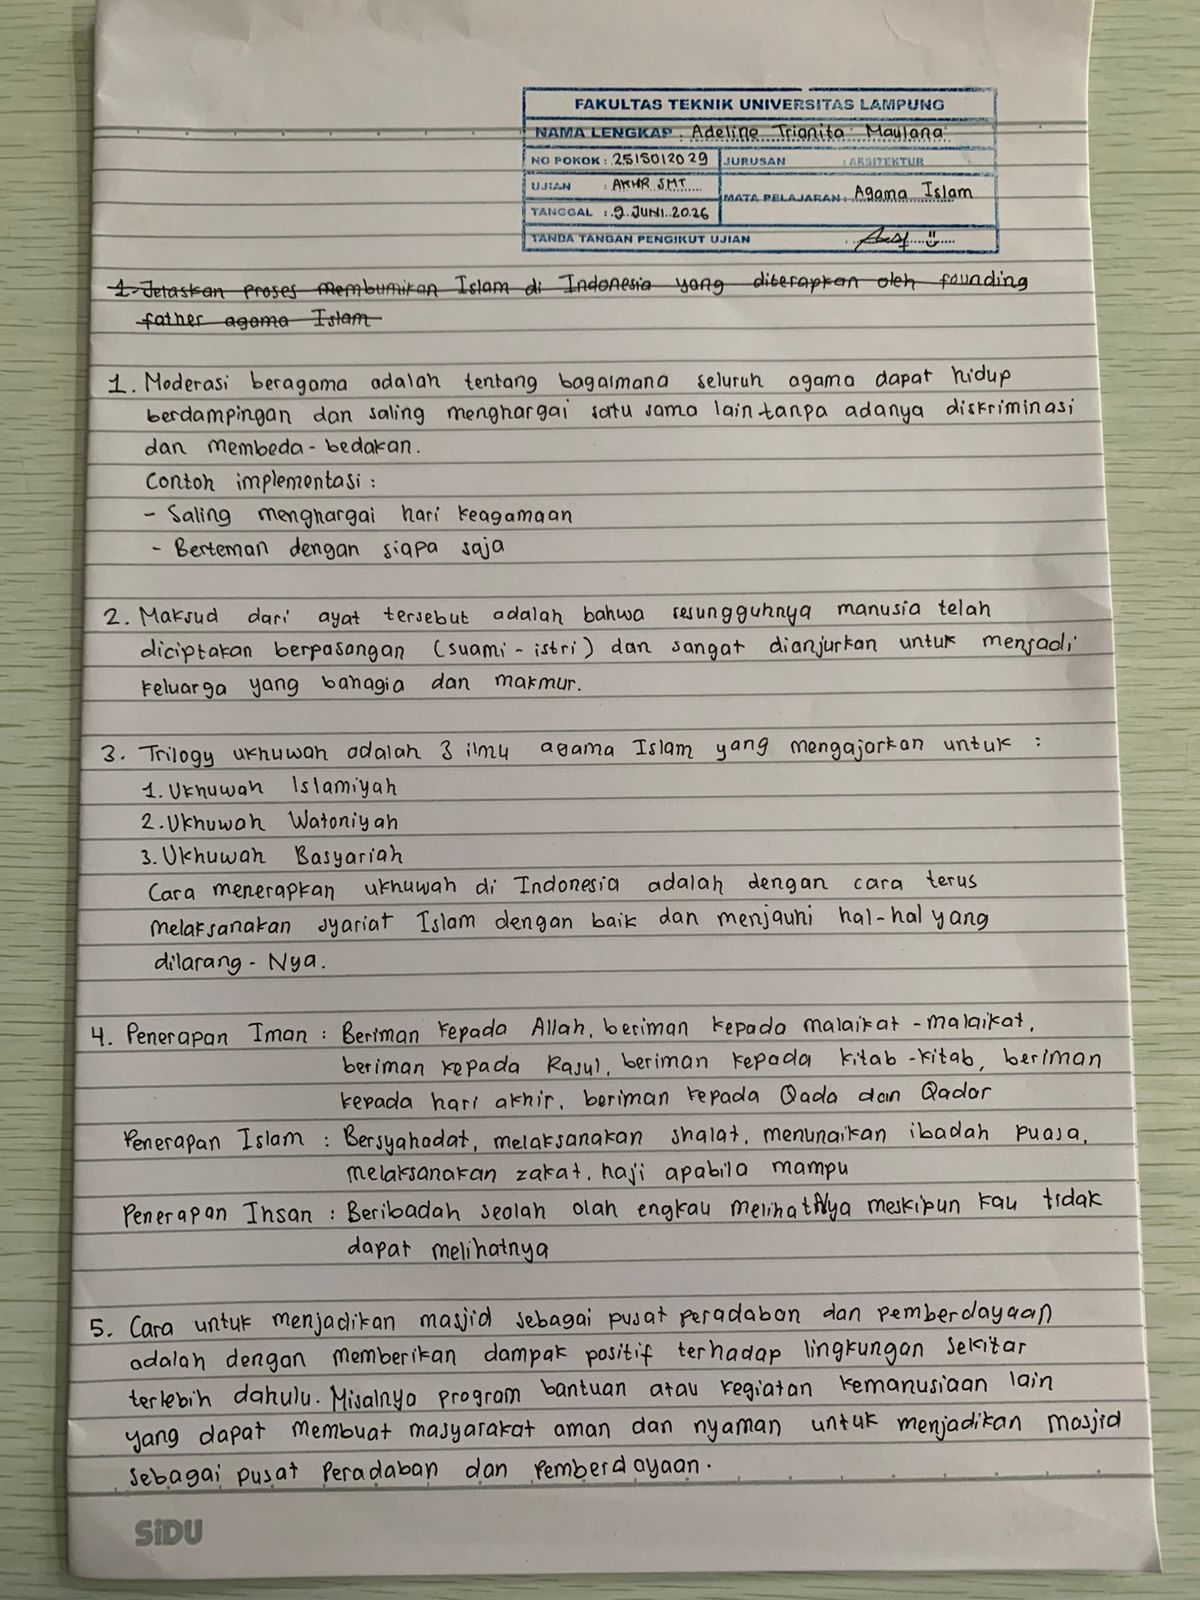 FAKULTAS TEKNIK UNIVERSITAS LAMPUNG
NAMA LENGKAP : Adeline Trianita Maulana
NO POKOK : 2515012029 JURUSAN : ARSITEKTUR
UJIAN : AKHR SMT
MATA PELAJARAN : Agama Islam
TANGGAL : 9 JUNI 2026
TANDA TANGAN PENGIKUT UJIAN
1. Jelaskan proses membumikan Islam di Indonesia yang diterapkan oleh founding
father agama Islam
1. Moderasi beragama adalah tentang bagaimana seluruh agama dapat hidup
berdampingan dan saling menghargai satu sama lain tanpa adanya diskriminasi
dan membeda-bedakan.
Contoh implementasi :
- Saling menghargai hari keagamaan
- Berteman dengan siapa saja
2. Maksud dari ayat tersebut adalah bahwa sesungguhnya manusia telah
diciptakan berpasangan (suami-istri) dan sangat dianjurkan untuk menjadi
keluarga yang bahagia dan makmur.
3. Trilogy ukhuwah adalah 3 ilmu agama Islam yang mengajarkan untuk :
1. Ukhuwah Islamiyah
2. Ukhuwah Watoniyah
3. Ukhuwah Basyariah
Cara menerapkan ukhuwah di Indonesia adalah dengan cara terus
melaksanakan syariat Islam dengan baik dan menjauhi hal-hal yang
dilarang-Nya.
4. Penerapan Iman : Beriman kepada Allah, beriman kepada malaikat-malaikat,
beriman kepada Rasul, beriman kepada kitab-kitab, beriman
kepada hari akhir, beriman kepada Qada dan Qadar
Penerapan Islam : Bersyahadat, melaksanakan shalat, menunaikan ibadah puasa,
melaksanakan zakat, haji apabila mampu
Penerapan Ihsan : Beribadah seolah olah engkau melihatNya meskipun kau tidak
dapat melihatnya
5. Cara untuk menjadikan masjid sebagai pusat peradaban dan pemberdayaan
adalah dengan memberikan dampak positif terhadap lingkungan sekitar
terlebih dahulu. Misalnya program bantuan atau kegiatan kemanusiaan lain
yang dapat membuat masyarakat aman dan nyaman untuk menjadikan masjid
sebagai pusat Peradaban dan Pemberdayaan.
SiDU